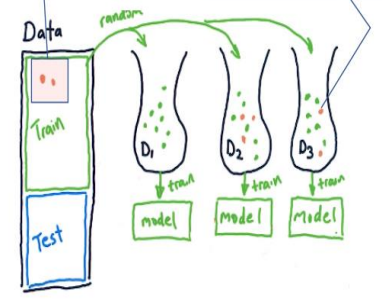 Data
random
Train
Test
D1
D2
D3
train
train
train
model
model
model